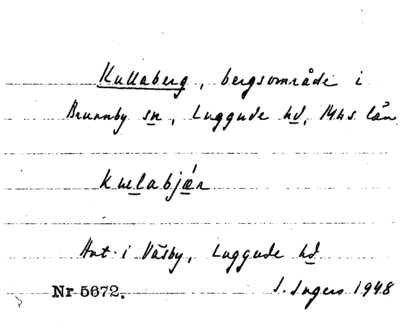 Kullaberg, bergsområde i
Brunnby sn, Luggude hd, Mhs. län
Kulabjär
Ant. i Väsby, Luggude hd
Nr 5672. I. Ingers 1948